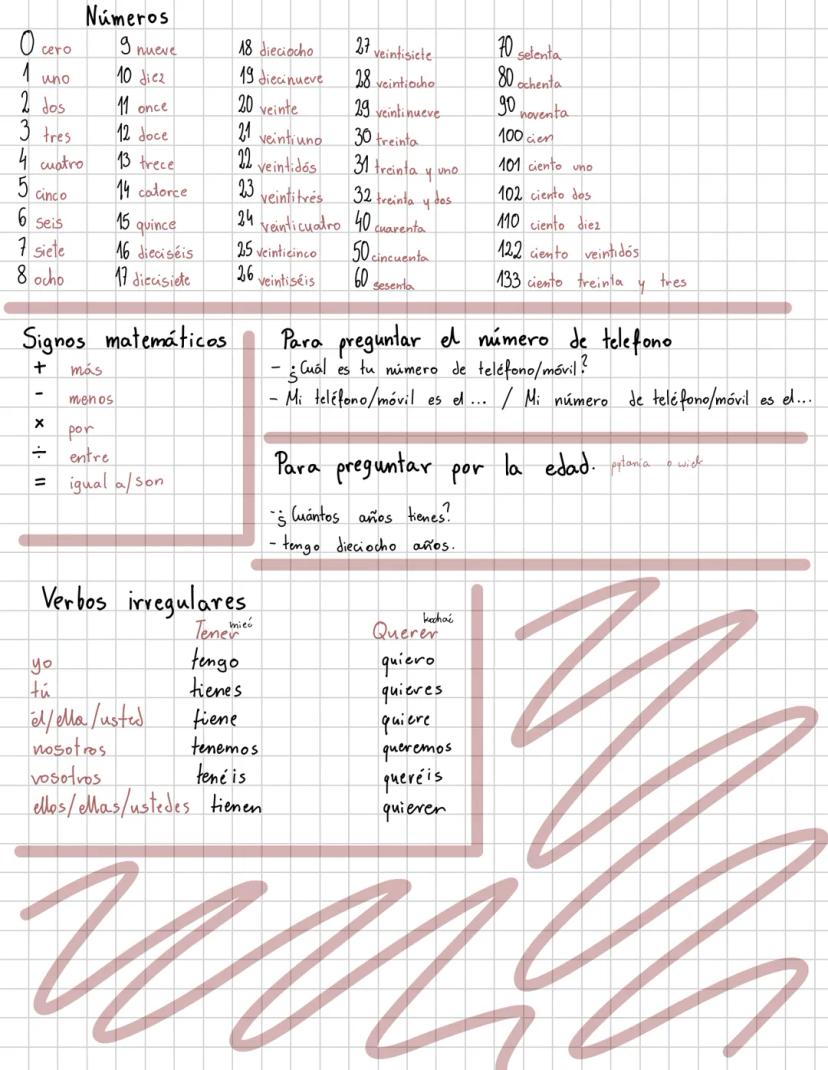 Números
0 cero
1 uno
2 dos
3 tres
4 cuatro
5 cinco
6 seis
7 siete
8 ocho
9 nueve
10 diez
11 once
12 doce
13 trece
14 catorce
15 quince
16 dieciséis
17 diecisiete
18 dieciocho
19 diecinueve
20 veinte
21 veintiuno
22 veintidós
23 veintitrés
24 veinticuatro
25 veinticinco
26 veintiséis
27 veintisiete
28 veintiocho
29 veintinueve
30 treinta
31 treinta y uno
32 treinta y dos
40 cuarenta
50 cincuenta
60 sesenta
70 setenta
80 ochenta
90 noventa
100 cien
101 ciento uno
102 ciento dos
110 ciento diez
122 ciento veintidós
133 ciento treinta y tres
Signos matemáticos
+ más
- menos
× por
÷ entre
= igual a/son
Para preguntar el número de telefono
- ¿Cuál es tu número de teléfono/móvil?
- Mi teléfono/móvil es el ... / Mi número de teléfono/móvil es el...
Para preguntar por la edad. pytania o wiek
- ¿Cuántos años tienes?
- tengo dieciocho años.
Verbos irregulares
Tener mieć Querer kochać
yo tengo quiero
tú tienes quieres
él/ella/usted tiene quiere
nosotros tenemos queremos
vosotros tenéis queréis
ellos/ellas/ustedes tienen quieren